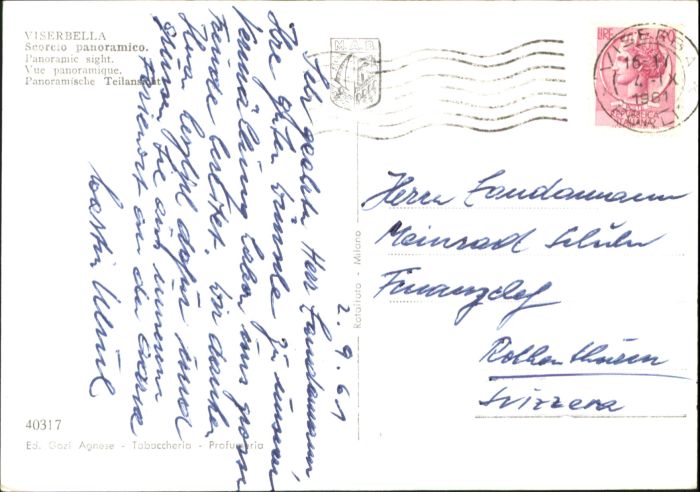 VISERBELLA
Scorcio panoramico.
Panoramic sight.
Vue panoramique.
Panoramische Teilansicht
M.A.B.
LIRE
1961
2.9.61
Sehr geehrter Herr Landammann,
Ihre guten Wünsche zu unserer
Vermählung haben uns grosse
Freude bereitet. Wir danken
Ihnen herzlich dafür und
grüssen Sie aus unserem
Ferienort an der Adria
Herrn Landammann
Meinrad Schuler
Finanzchef
Rothenthurm
Svizzera
Rotalfoto - Milano
40317
Ed. Gozi Agnese - Tabaccheria - Profumeria